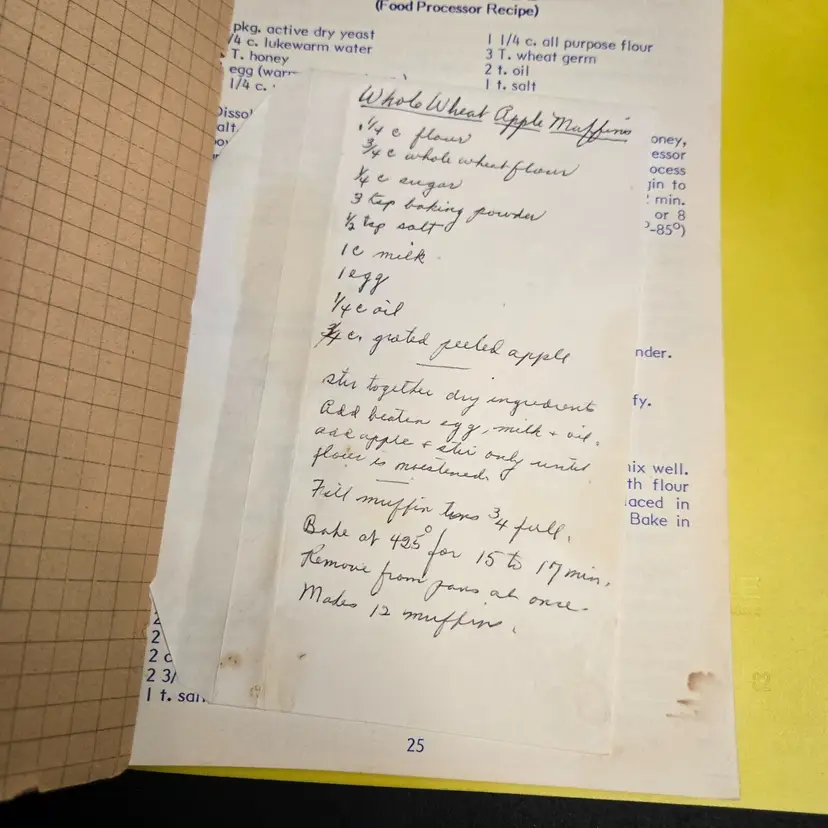 (Food Processor Recipe)
pkg. active dry yeast
/4 c. lukewarm water
T. honey
egg (warm
1/4 c.
1 1/4 c. all purpose flour
3 T. wheat germ
2 t. oil
1 t. salt
Whole Wheat Apple Muffins
1 1/4 c flour
3/4 c whole wheat flour
1/4 c sugar
3 tsp baking powder
1/2 tsp salt
1 c milk
1 egg
1/4 c oil
3/4 c. grated peeled apple
stir together dry ingredients
Add beaten egg, milk + oil.
add apple + stir only until
flour is moistened.
Fill muffin tins 3/4 full.
Bake at 425° for 15 to 17 min.
Remove from pans at once.
Makes 12 muffins.
Dissol
alt
oney,
essor
ocess
gin to
min.
or 8
°-85°)
nder.
fy.
nix well.
th flour
aced in
Bake in
2
2
2 c
2 3/
1 t. sal
25